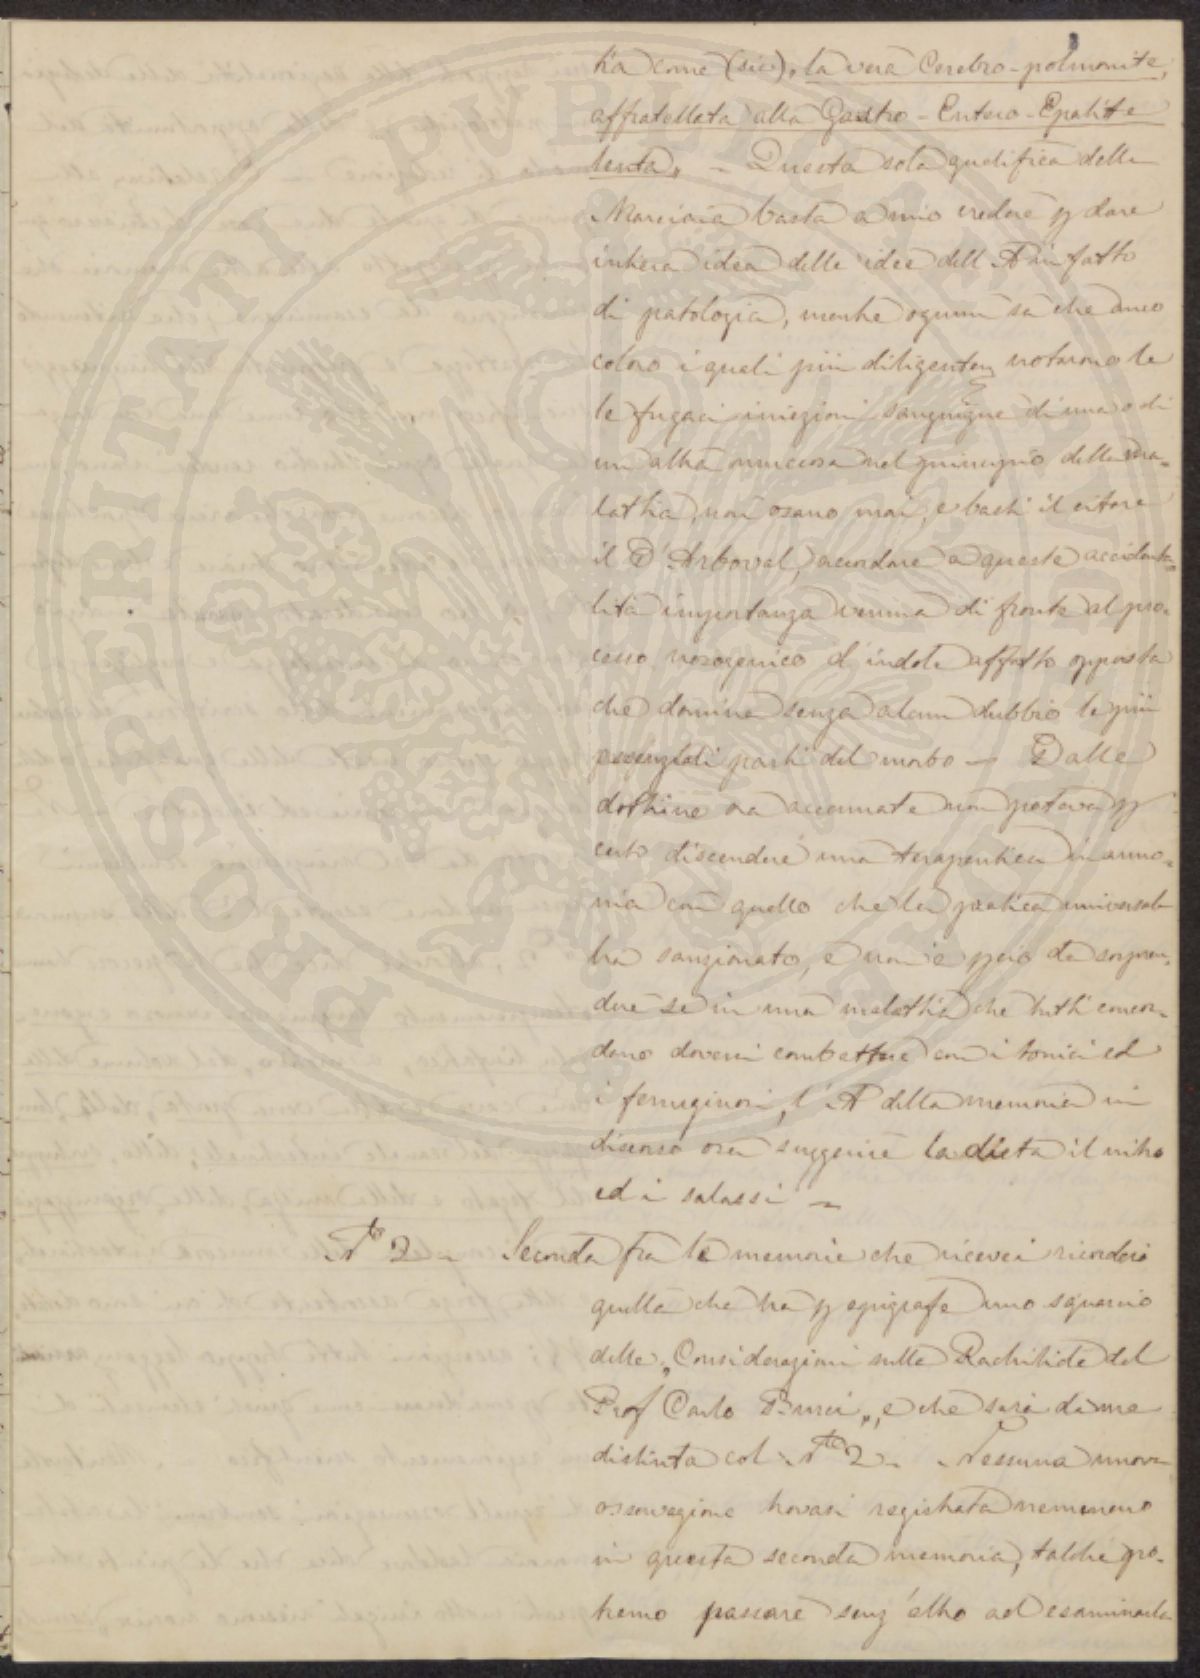 ha come (sic) „la vera Cerebro-polmonite,
affratellata alla Gastro-Entero-Epatite
lenta„ — Questa sola qualifica della
Marciaia basta a mio credere p dare
intiera idea delle idee dell'A in fatto
di patologia, mentre ognun sa che anco
coloro i quali più diligentem notarono le
le fugaci iniezioni sanguigne di una o di
un altra muccosa nel principio della ma=
lattia, non osano mai, e basti il citare
il D'Arboval, accordare a queste accidenta=
lità importanza veruna di fronte al pro=
cesso nosogenico d'indole affatto opposta
che domina senza alcun dubbio le più
essenziali parti del morbo — Dalle
dottrine ora accennate non poteva p
certo discendere una terapeutica in armo=
nia con quello che la pratica universale
ha sanzionato, e non è pciò da sorpren=
dere se in una malattia che tutti concor=
dano doversi combattere con i tonici ed
i ferruginosi, l'A della memoria in
discorso osa suggerire la dieta il nitro
ed i salassi —
N° 2 — Seconda fra le memorie che ricevei ricorderò
quella che ha p epigrafe uno squarcio
delle „Considerazioni sulla Rachitide del
Prof Carlo Burci„, e che sarà da me
distinta col N° 2 — Nessuna nuova
osservazione trovasi registrata nemmeno
in questa seconda memoria, talché po=
tremo passare senz'altro ad esaminarla
PROSPERITATI PVBLICAE